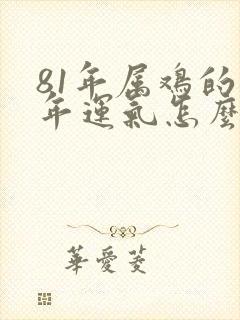 81年属鸡的
年運氣怎麼
華愛菱